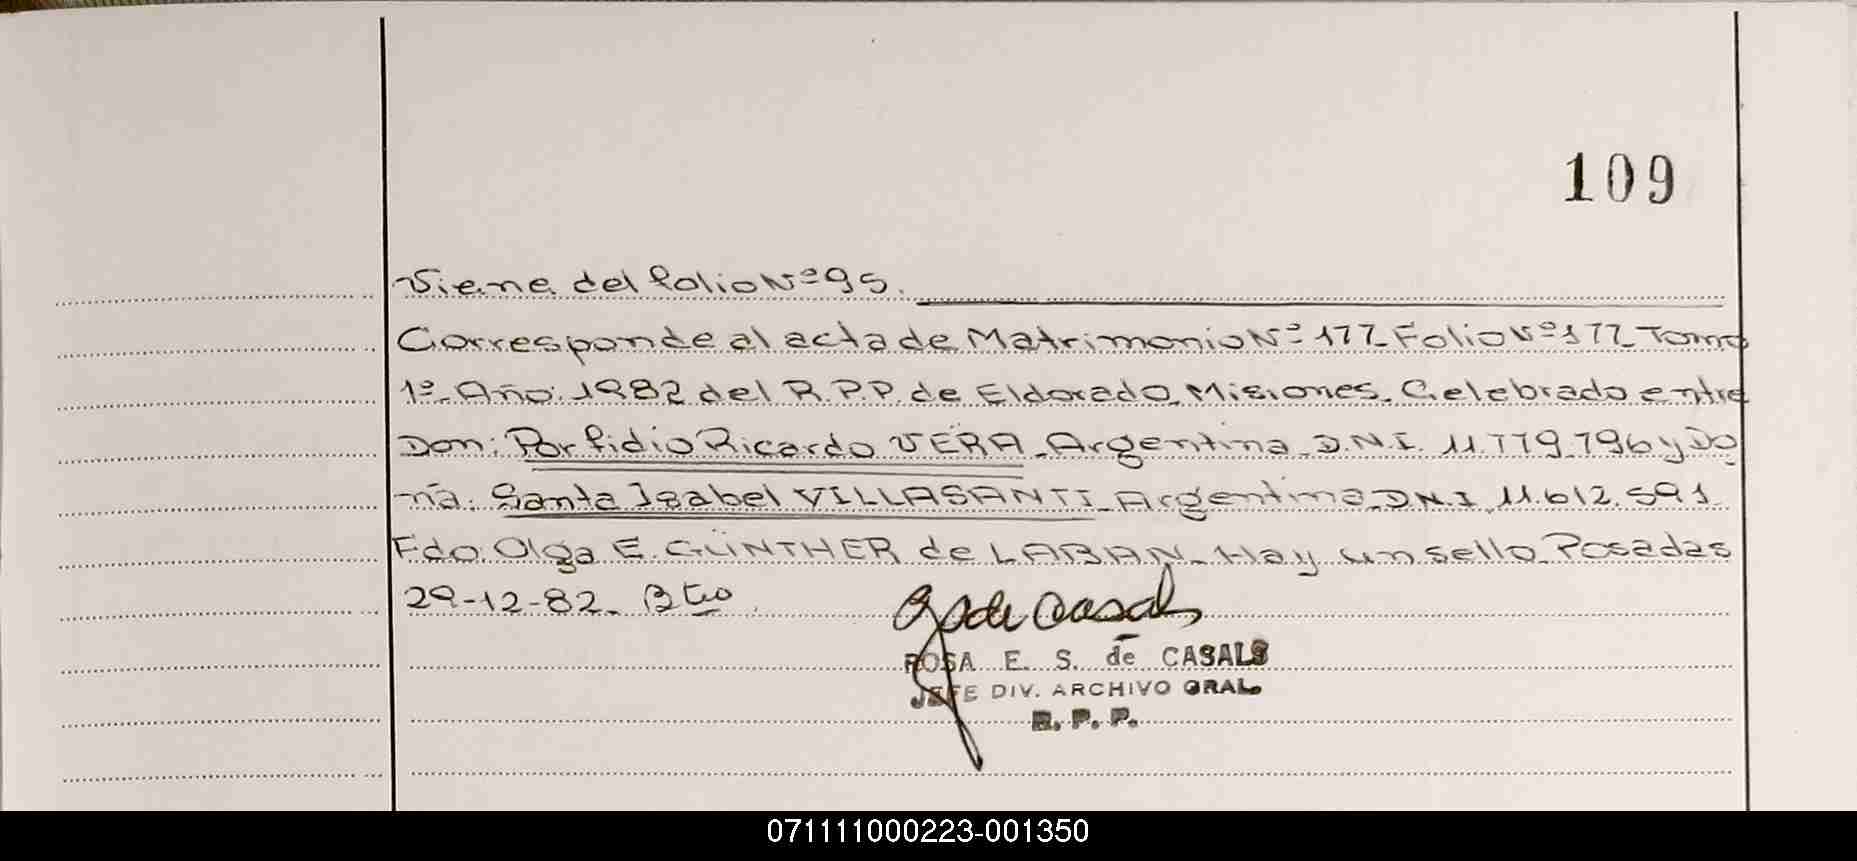 109
Viene del folio Nº 95.
Corresponde al acta de Matrimonio Nº 177_Folio Nº 177_Tomo
1º_Año: 1982 del R.P.P. de Eldorado_Misiones_Celebrado entre
Don: Porfidio Ricardo VERA_Argentina_D.N.I. 11.779.796 y Do
-ña: Santa Isabel VILLASANTI_Argentina_D.N.I. 11.612.591
Fdo. Olga E. GÜNTHER de LABAN_Hay un sello_Posadas
29-12-82_Bto
ROSA E. S. de CASALS
JEFE DIV. ARCHIVO GRAL.
R. P. P.
071111000223-001350